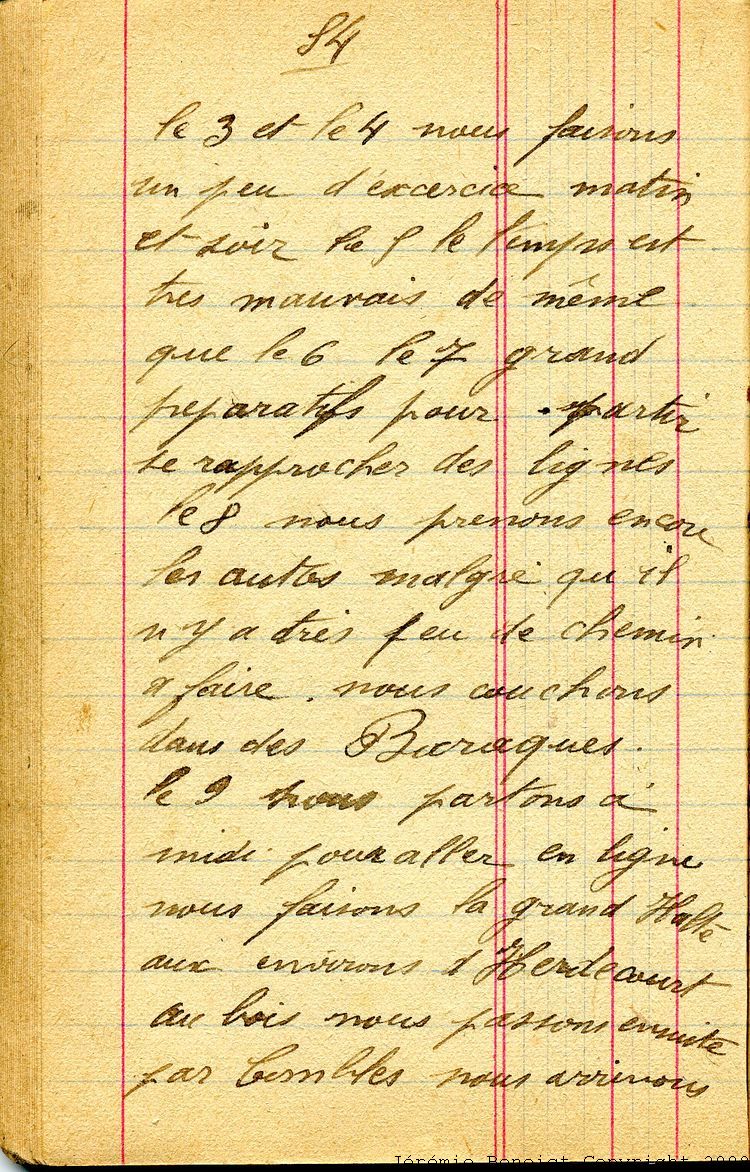 84
le 3 et le 4 nous faisons
un peu d'excercice matin
et soir le 5 le temps est
tres mauvais de même
que le 6 le 7 grand
preparatifs pour partir
se rapprocher des lignes
le 8 nous prenons encore
les autos malgré qu'il
n'y a très peu de chemin
a faire. nous couchons
dans des Baraques.
le 9 nous partons à
midi pour aller en ligne
nous faisons la grand Halte
aux environs d'Herdecourt
au bois nous passons ensuite
par Combles nous arrivons
Jérémie Benoist Copyright